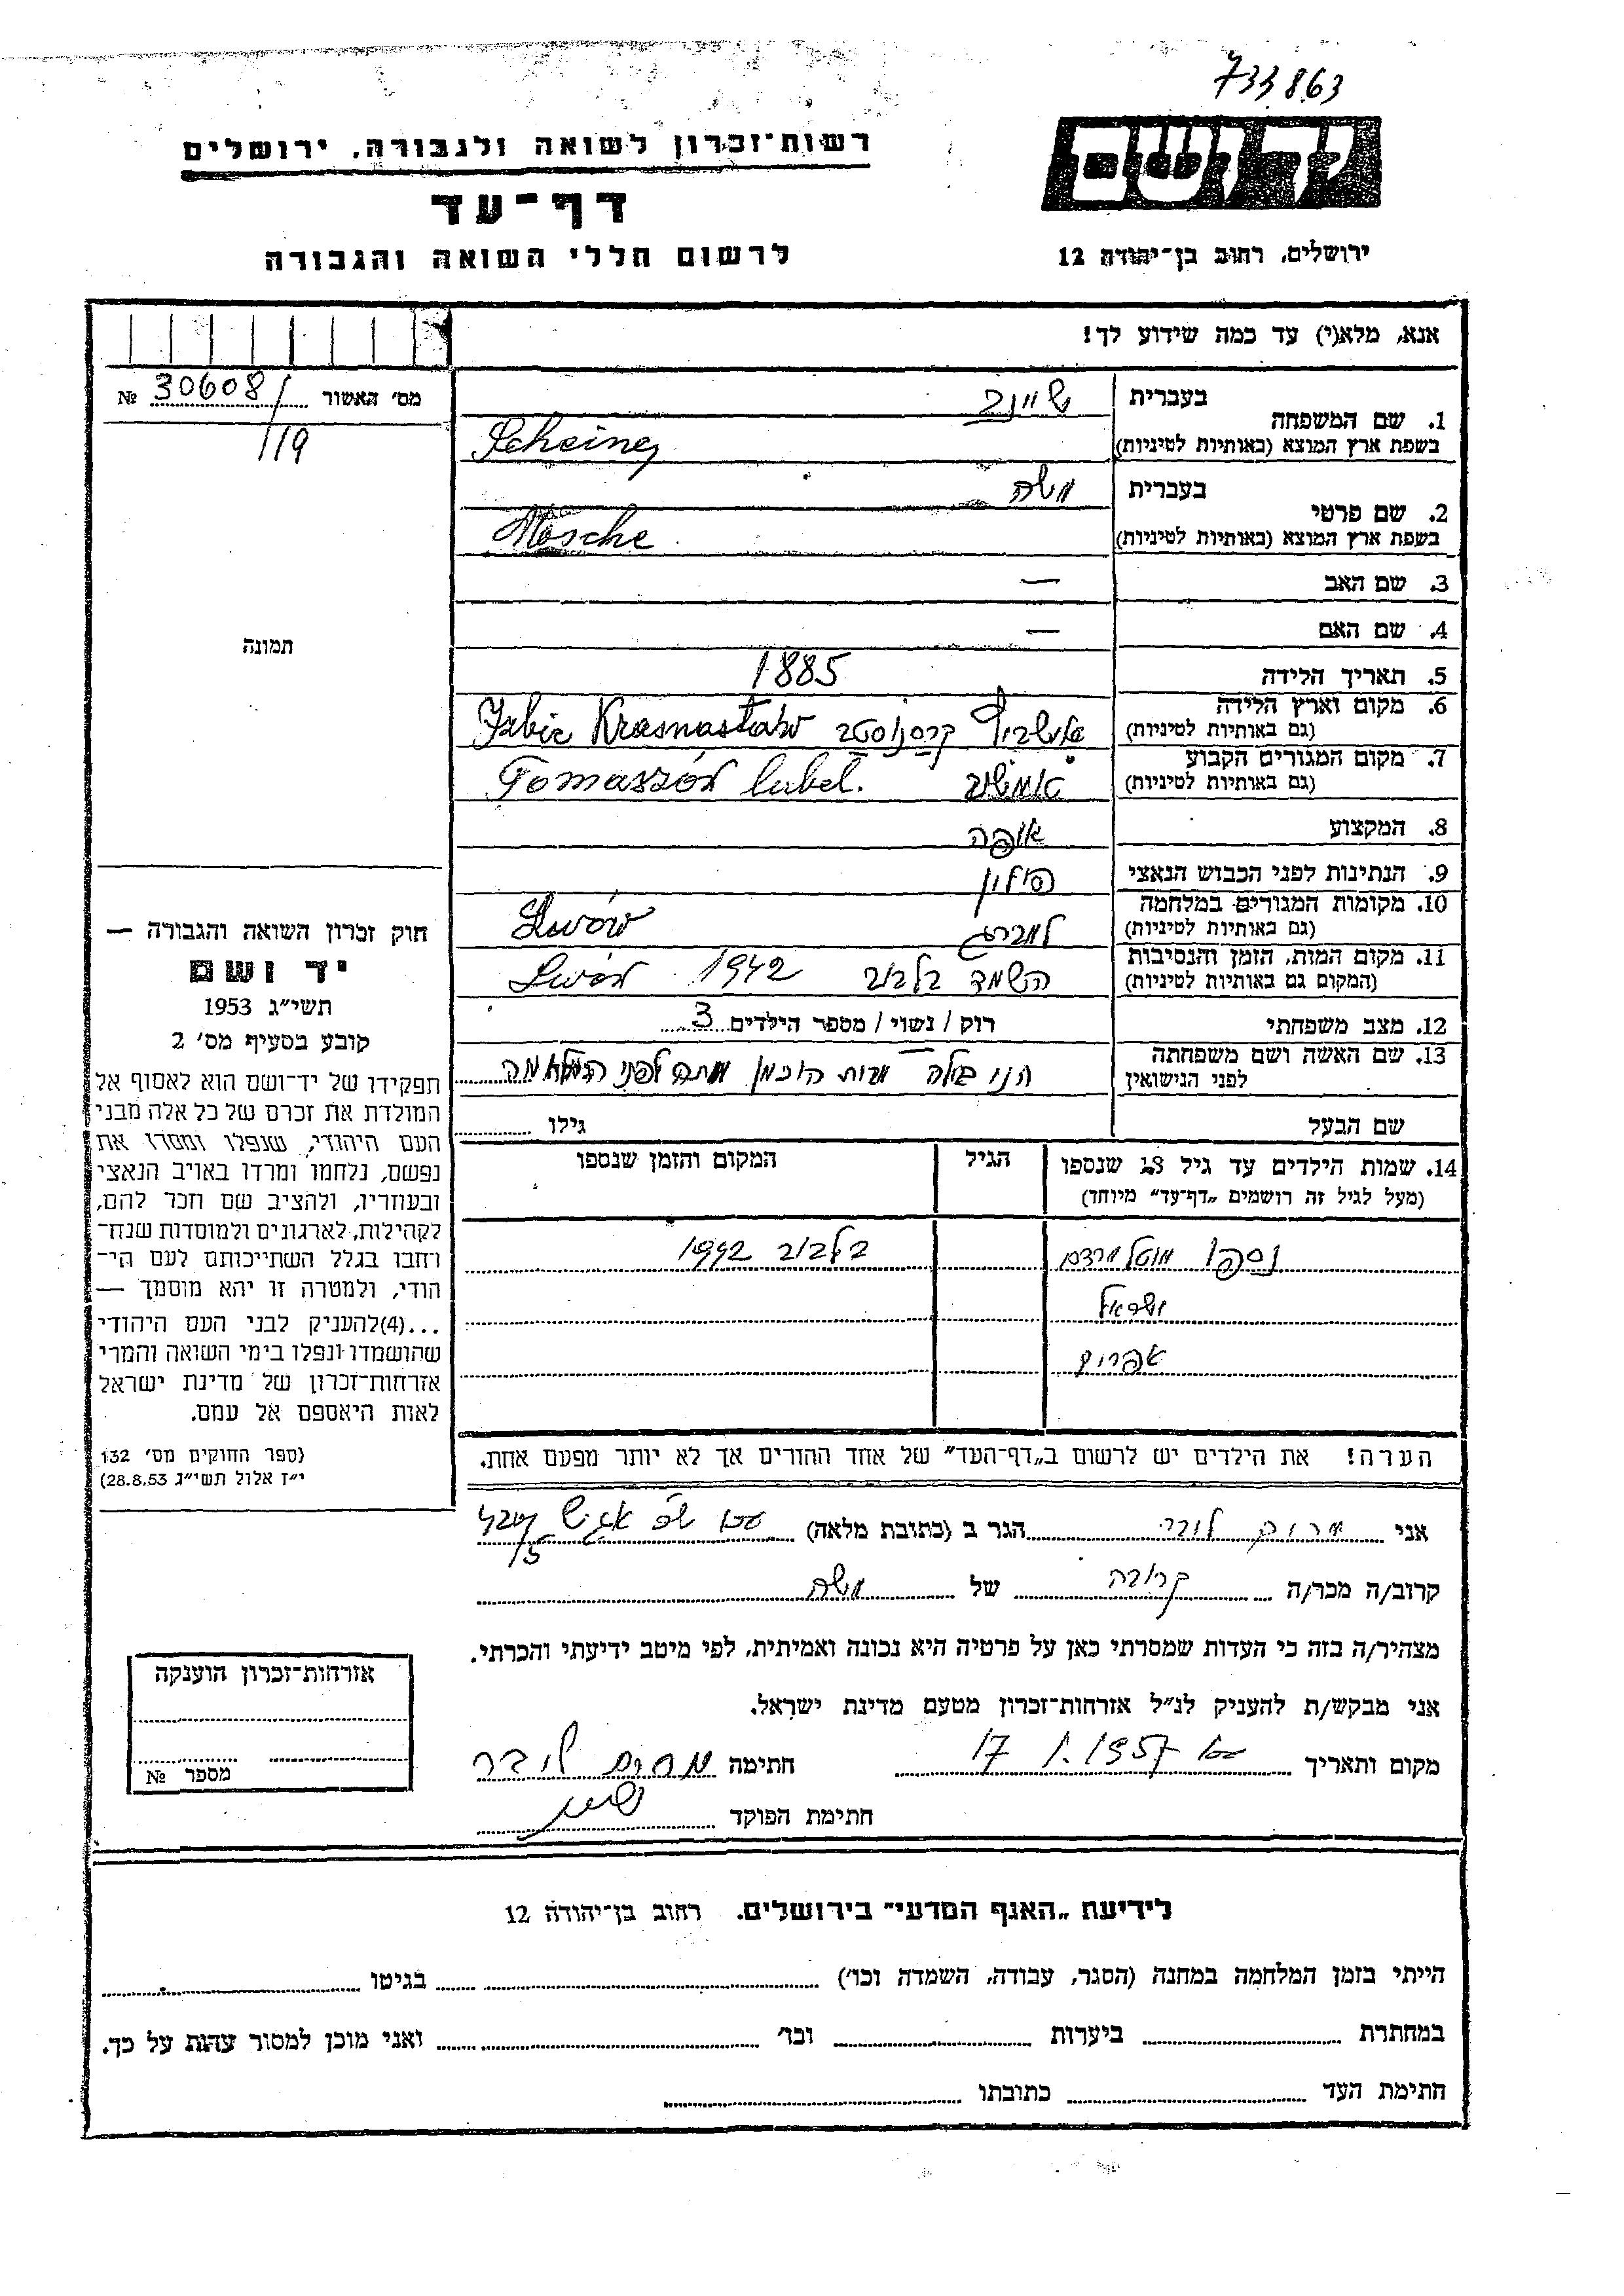 733863
רשות־זכרון לשואה ולגבורה, ירושלים
יד ושם
דף־עד
לרשום חללי השואה והגבורה
ירושלים, רחוב בן־יהודה 12
אנא, מלא(י) עד כמה שידוע לך!
מס׳ האשור 30608/ №
119
בעברית
1. שם המשפחה
בשפת ארץ המוצא (באותיות לטיניות) Scheiner
בעברית משה
2. שם פרטי
בשפת ארץ המוצא (באותיות לטיניות) Mosche
3. שם האב —
4. שם האם —
תמונה
5. תאריך הלידה 1885
6. מקום וארץ הלידה
(גם באותיות לטיניות) Krasnastaw
7. מקום המגורים הקבוע
(גם באותיות לטיניות) Tomaszów lubel.
8. המקצוע אופה
9. הנתינות לפני הכבוש הנאצי פולון
10. מקומות המגורים במלחמה
(גם באותיות לטיניות) למברג Lwów
11. מקום המות, הזמן והנסיבות
(המקום גם באותיות לטיניות) השמד בלבוב 1942 Lwów
12. מצב משפחתי רוק / נשוי / מספר הילדים 3
13. שם האשה ושם משפחתה
לפני הנישואין מתה לפני המלחמה
שם הבעל גילו
14. שמות הילדים עד גיל 18 שנספו הגיל המקום והזמן שנספו
(מעל לגיל זה רושמים „דף־עד״ מיוחד)
נספו בלבוב 1942
אפרים
הערה! את הילדים יש לרשום ב„דף־העד״ של אחד ההורים אך לא יותר מפעם אחת.
חוק זכרון השואה והגבורה —
יד ושם
תשי״ג 1953
קובע בסעיף מס׳ 2
תפקידו של יד־ושם הוא לאסוף אל
המולדת את זכרם של כל אלה מבני
העם היהודי, שנפלו ומסרו את
נפשם, נלחמו ומרדו באויב הנאצי
ובעוזריו, ולהציב שם וזכר להם,
לקהילות, לארגונים ולמוסדות שנח־
רחבו בגלל השתייכותם לעם הי־
הודי, ולמטרה זו יהא מוסמך —
...(4)להעניק לבני העם היהודי
שהושמדו ונפלו בימי השואה והמרי
אזרחות־זכרון של מדינת ישראל
לאות היאספם אל עמם.
(ספר החוקים מס׳ 132
י״ז אלול תשי״ג 28.8.53)
אני הגר ב (כתובת מלאה)
קרוב/ה מכר/ה קרובה של משה
מצהיר/ה בזה כי העדות שמסרתי כאן על פרטיה היא נכונה ואמיתית, לפי מיטב ידיעתי והכרתי.
אני מבקש/ת להעניק לנ״ל אזרחות־זכרון מטעם מדינת ישראל.
מקום ותאריך 17 1.1957 חתימה
חתימת הפוקד
אזרחות־זכרון הוענקה
מספר №
לידיעת „האגף המדעי״ בירושלים. רחוב בן־יהודה 12
הייתי בזמן המלחמה במחנה (הסגר, עבודה, השמדה וכו׳) בגיטו
במחתרת ביערות וכו׳ ואני מוכן למסור עדות על כך.
חתימת העד כתובתו